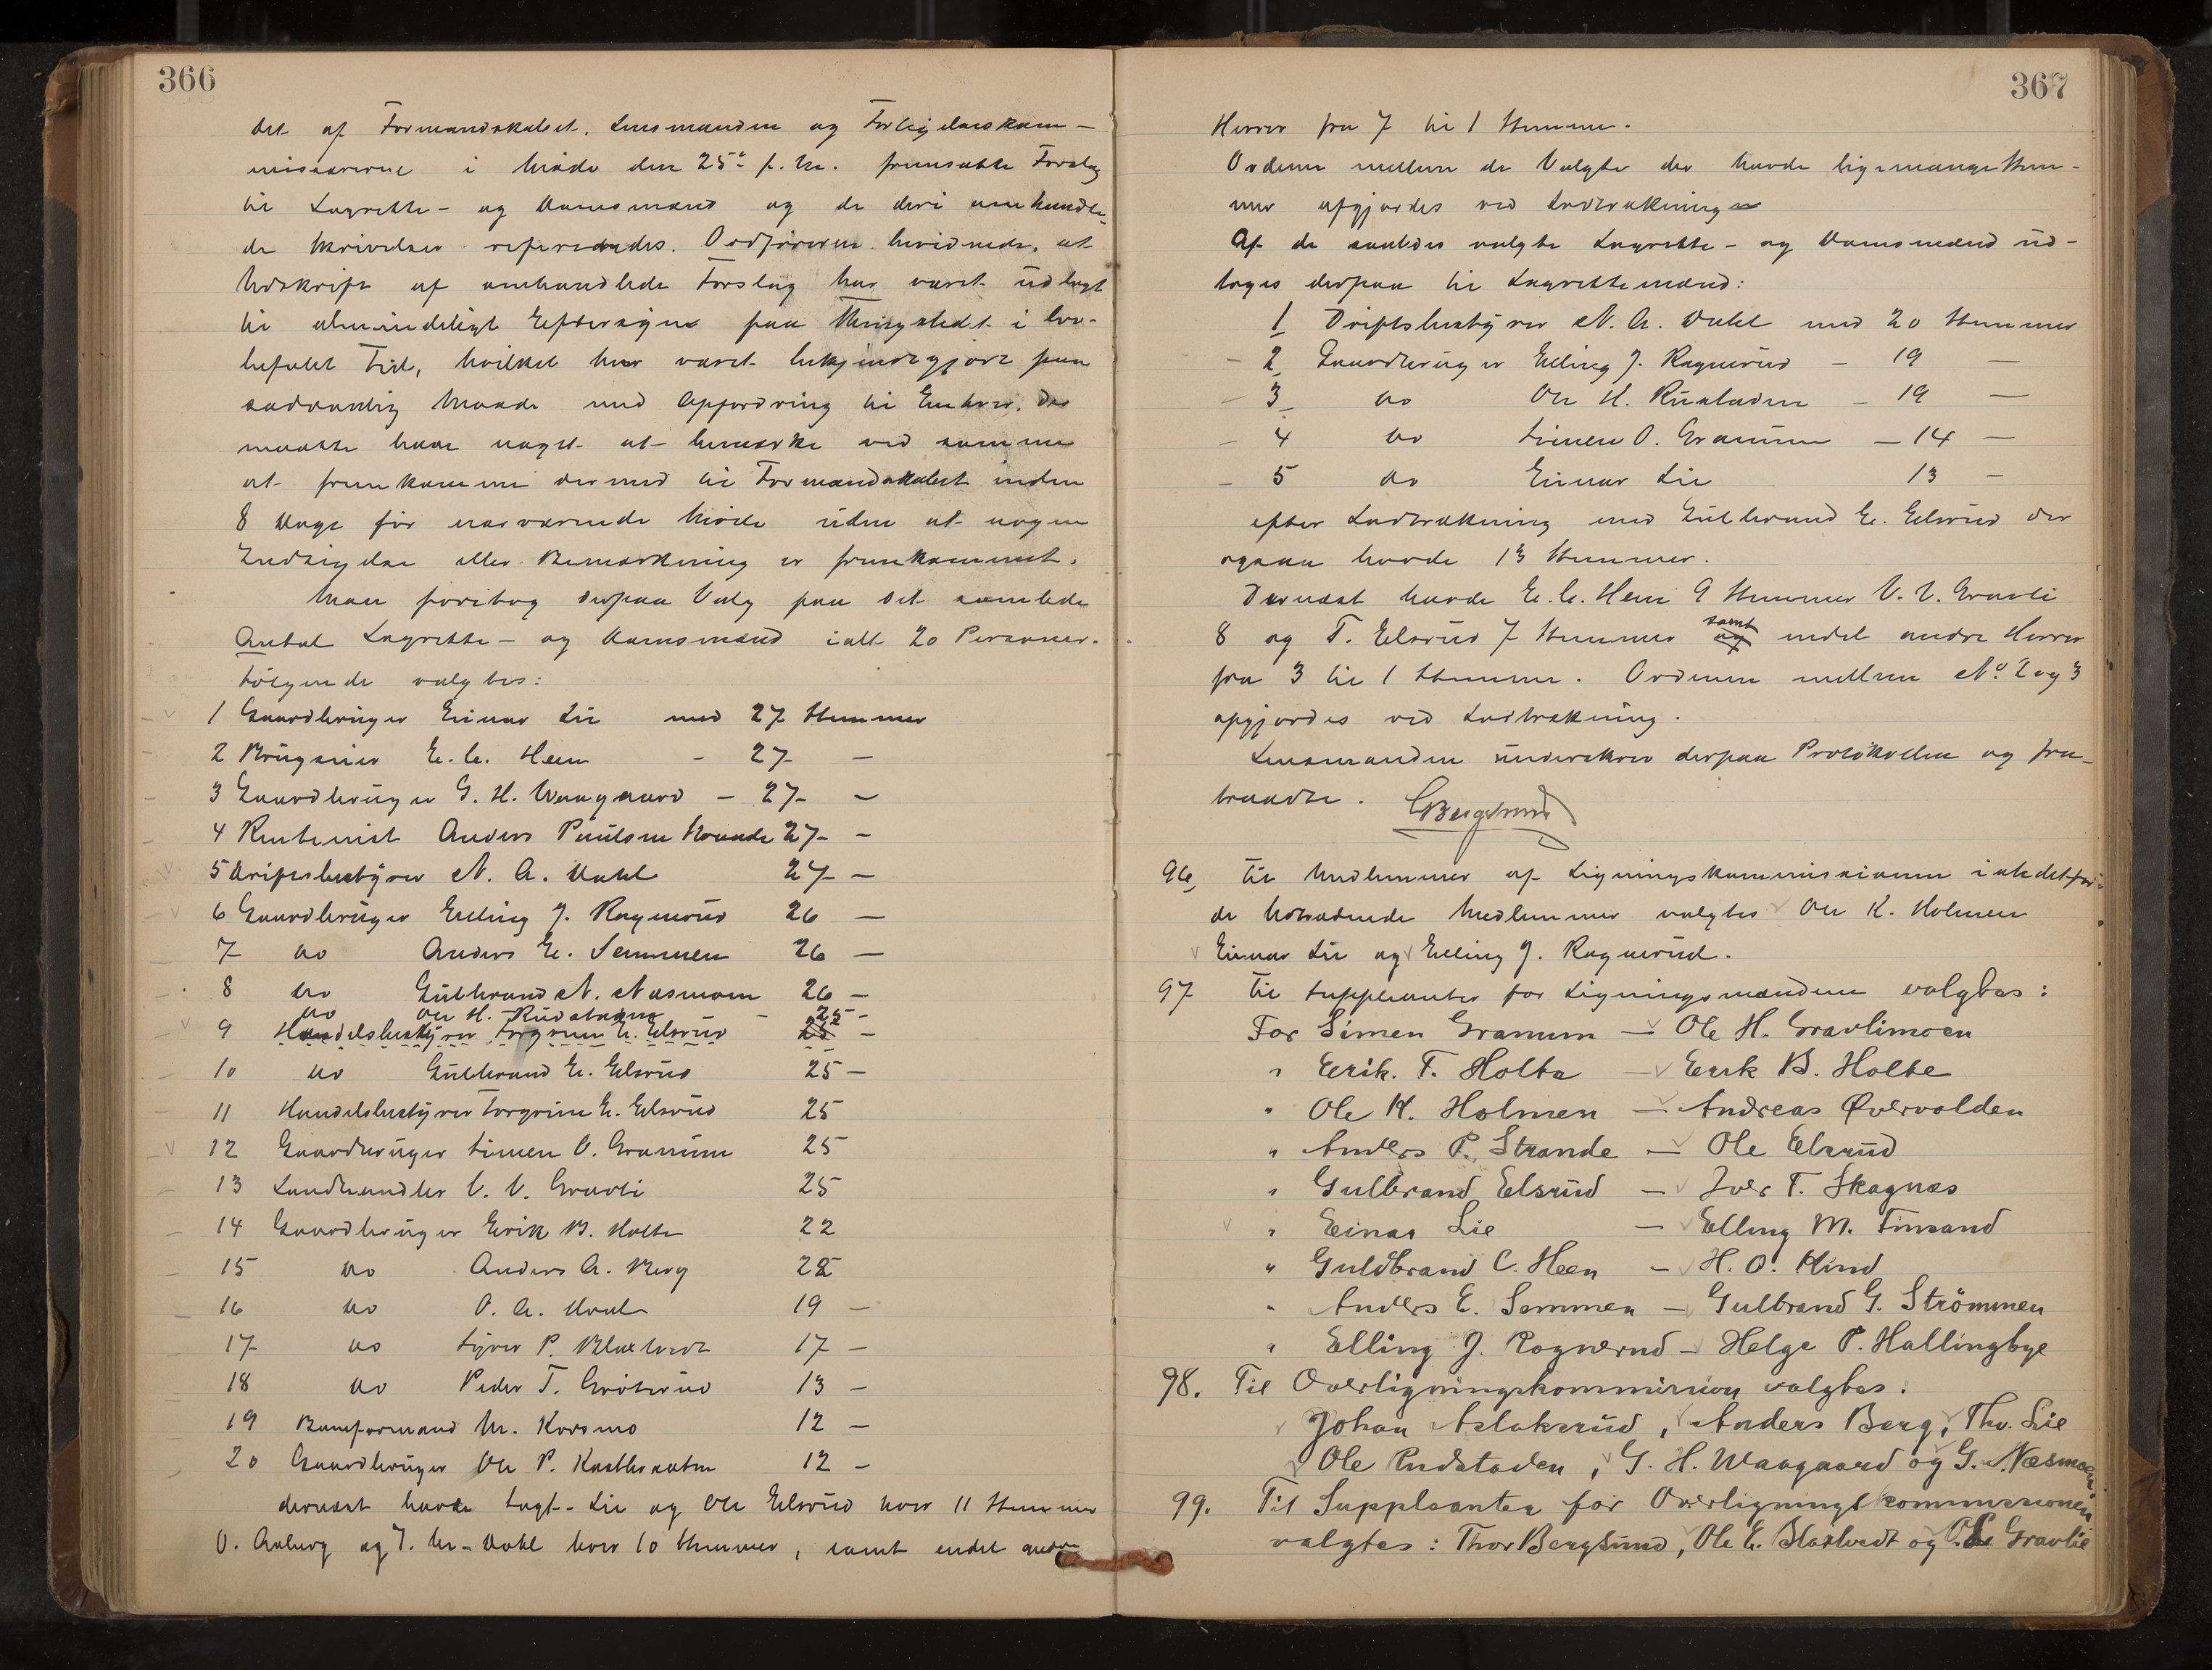 366
det af Formandskabet, Lensmanden og Forligelseskom-
misærerne i Møde den 25de f. M. fremsatte Forslag
til Lagrette- og Domsmænd og de deri omhandle-
de Skrivelser refereredes. Ordføreren bevidnede, at
Udskrift af omhandlede Forslag har været udlagt
til almindeligt Eftersyn paa Thingstedet i lov-
befalet Tid, hvilket har været bekjendtgjort paa
sædvanlig Maade med Opfordring til Enhver, der
maatte have noget at bemærke ved samme
at fremkomme dermed til Formandskabet inden
8 Dage før nærværende Møde uden at nogen
Indsigelse eller Bemærkning er fremkommet.
Man foretog derpaa Valg paa det samlede
Antal Lagrette- og Domsmænd ialt 20 Personer.
Følgende valgtes:
1 Gaardbruger Einar Lie med 27 Stemmer
2 Brugseier E. C. Heen - 27 —
3 Gaardbruger G. H. Waagaard — 27 —
4 Rentenist Anders Paulsen Strande 27 —
5 Driftsbestyrer N. A. Dahl 27 —
6 Gaardbruger Elling J. Rognerud 26 —
7 do Anders E. Semmen 26 —
8 do Gulbrand N. Næsmoen 26 —
do Ole H. Rudstaden - 25 -
9 Handelsbestyrer Torgrim E. Elsrud 25 —
10 do Gulbrand E. Elsrud 25 —
11 Handelsbestyrer Torgrim E. Elsrud 25
12 Gaardbruger Simen O. Granum 25
13 Landhandler O. O. Gravli 25
14 Gaardbruger Erik B. Holte 22
15 do Anders A. Berg 22
16 do O. A. 19 —
17 do Syver P. Blakstvedt 17 —
18 do Peder T. Grøterud 13 —
19 Baneformand M. Korsmo 12 —
20 Gaardbruger Ole P. Kastbraaten 12 —
dernæst havde Lagt. Lie og Ole Elsrud hver 11 Stemmer
O. Aaberg og J. M. Dahl hver 10 Stemmer, samt endel andre
367
Herrer fra 7 til 1 Stemme.
Ordenen mellem de Valgte der havde ligemange Stem-
mer afgjordes ved Lodtrækning
Af de saaledes valgte Lagrette- og Domsmænd ud-
toges derpaa til Lagrettemænd:
1 Driftsbestyrer N. A. Dahl med 20 Stemmer
— 2 Gaardbruger Elling J. Rognerud — 19 —
— 3 do Ole H. Rudstaden — 19 —
— 4 do Simen O. Granum — 14 —
— 5 do Einar Lie 13 —
efter Lodtrækning med Gulbrand E. Elsrud der
ogsaa havde 13 Stemmer.
Dernæst havde E. C. Heen 9 Stemmer O. O. Gravli
8 og T. Elsrud 7 Stemmer og samt endel andre Herrer
fra 3 til 1 Stemme. Ordenen mellem No 2 og 3
afgjordes ved Lodtrækning.
Lensmanden underskrev derpaa Protokollen og fra-
traadte. Bergsund
96, Til Medlemmer af Ligningskommissionen istedetfor
de udtrædende Medlemmer valgtes Ole K. Holmen
Einar Lie og Elling J. Rognerud.
97 Til Suppleanter for Ligningsmændene valgtes:
For Simen Granum — Ole H. Gravlimoen
" Erik. T. Holte — Erik B. Holte
" Ole K. Holmen — Andreas Øvervolden
" Anders P. Strande — Ole Elsrud
" Gulbrand Elsrud — Iver T. Skagnæs
" Einar Lie — Elling M. Finsand
" Guldbrand C. Heen — H. O. Hind
" Anders E. Semmen — Gulbrand G. Strömmen
" Elling J. Rognerud — Helge P. Hallingbye
98. Til Overligningskommission valgtes:
Johan Aslaksrud, Anders Berg, Thv. Lie
Ole Rudstaden, G. H. Waagaard og G. Næsmoen
99. Til Suppleanter for Overligningskommissionen
valgtes: Thor Bergsund, Ole E. Blakstvedt og Gravlie